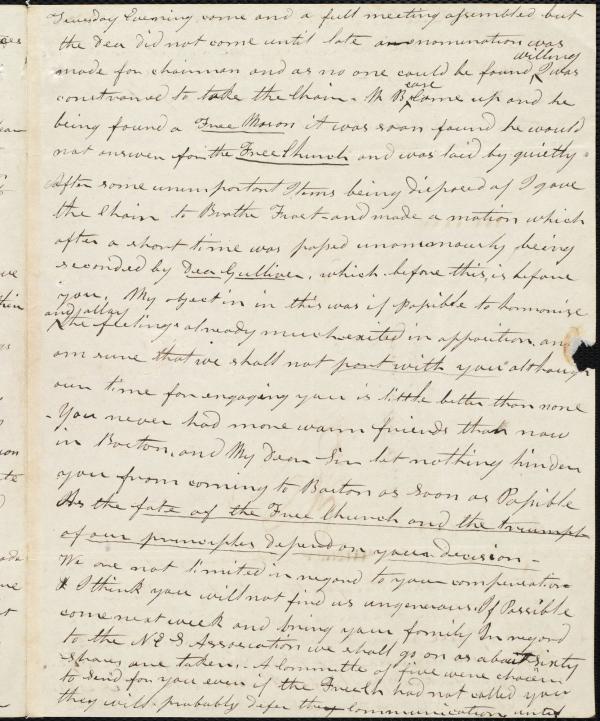 Teusday Evening come and a full meeting assembled but
the Dea did not come until late a nomination was
made for chairman and as no one could be found willing I was
constraned to take the Chair - Mr B's case come up and he
being found a Free Mason it was soon found he would
not answer for the Free Church and was laid by quietly -
After some unimportant Items being disposed of I gave
the Chair to Brothe Frost - and made a motion which
after a short time was passed unamonously being
seconded by Dea Gulliver, which before this, is before
you. My object in in this was if possible to harmonise
and allay the feelings already much exited in apposition, and
am sure that we shall not part with you although
our time for engaging you is little better than none
- You never had more warm friends than now
in Boston, and My Dear Sir let nothing hinder
you from coming to Boston as soon as Possible
As the fate of the Free Church and the triumph
of our principles depend on your decision -
We are not limited in regard to your compensation
& I think you will not find us ungenerous. If Possible
come next week and bring your family In regard
to the N E S Association we shall go on as about sixty
Shares are taken. - A Committe of five were chosen
to Send for you even if the Free Ch had not called you
they will probably defer communication until